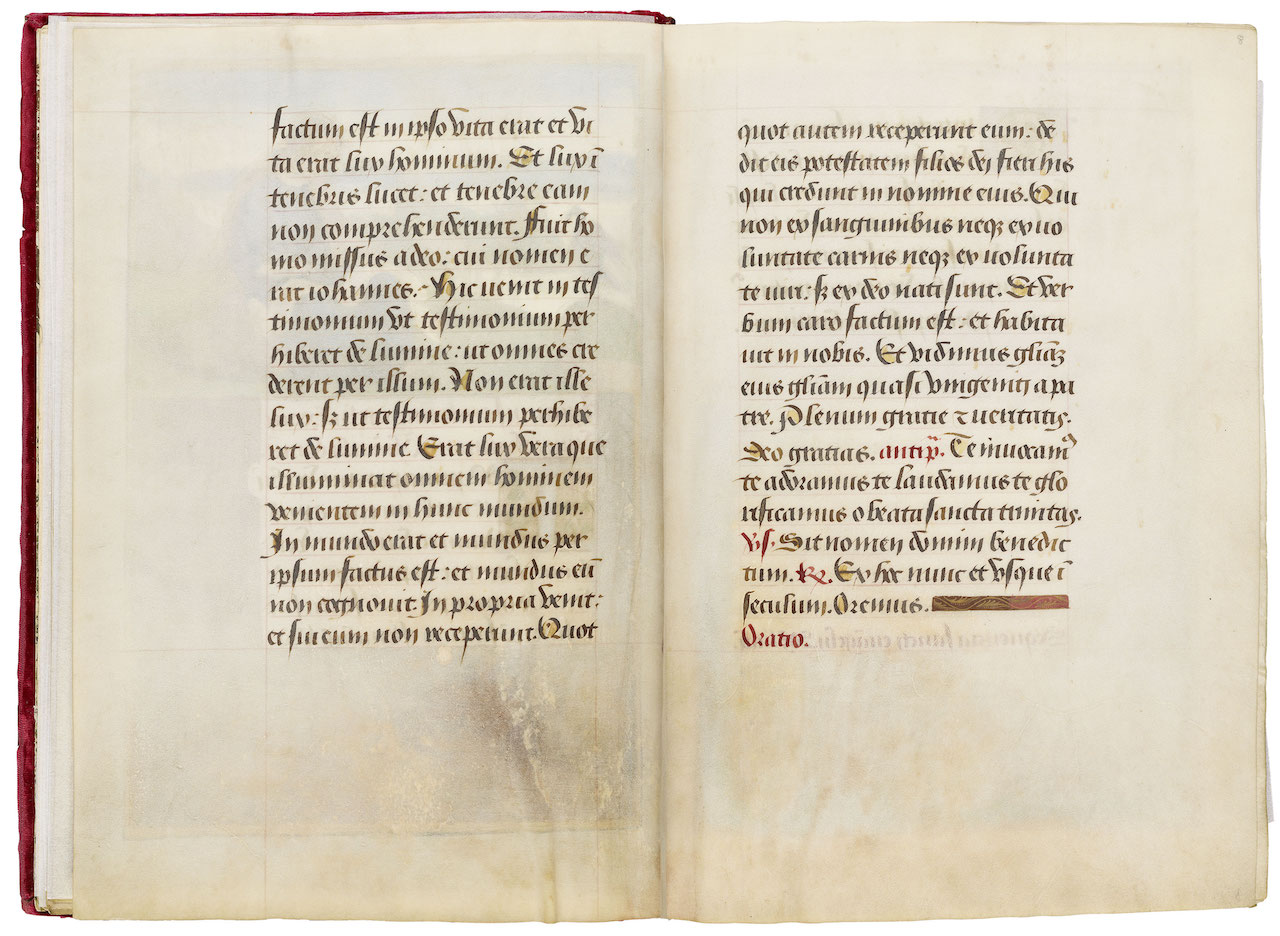 factum est in ipso vita erat et vi
ta erat lux hominum. Et lux ī
tenebris lucet: et tenebre eam
non comprehenderunt. Fuit ho
mo missus a deo: cui nomen e
rat iohannes. Hic uenit in tes
timonium vt testimonium per
hiberet de lumine: ut omnes cre
derent per illum. Non erat ille
lux: sꝫ ut testimonium perhibe
ret de lumine. Erat lux vera que
illuminat omnem hominem
venientem in hunc mundum.
In mundo erat et mundus per
ipsum factus est: et mundus eū
non cognouit. In propria venit:
et sui eum non receperunt. Quot
8
quot autem receperunt eum: de
dit eis potestatem filios dei fieri his
qui credunt in nomine eius. Qui
non ex sanguinibus neqꝫ ex uo
luntate carnis neqꝫ ex uolunta
te uiri: sꝫ ex deo nati sunt. Et ver
bum caro factum est: et habita
uit in nobis. Et vidimus gliāꝫ
eius gliām quasi vnigeniti a pa
tre. Plenum gratie ⁊ ueritatis.
Deo gratias. antipͣ. Te inuocamꝰ
te adoramus te laudamus te glo
rificamus o beata sancta trinitas.
v̄s. Sit nomen domini benedic
tum. ℟. Ex hoc nunc et vsque ī
seculum. Oremus.
Oratio.